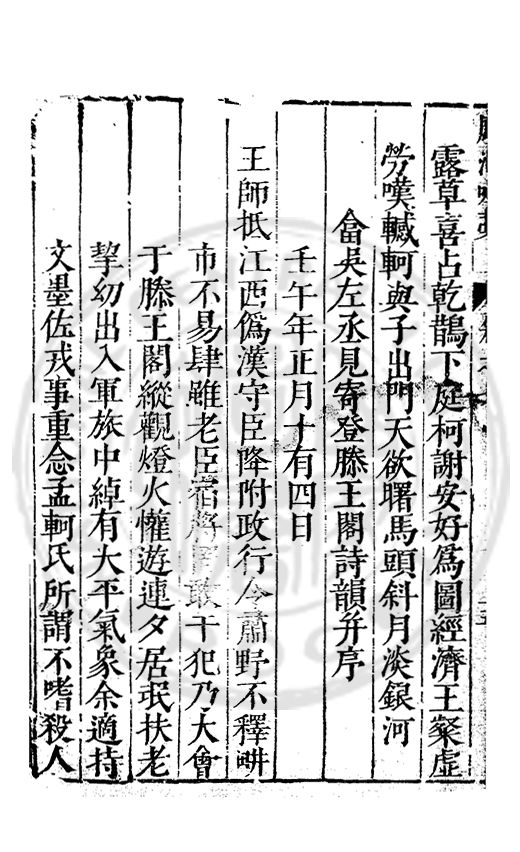 露草喜占乾鵲下庭柯謝安好為圖經濟王粲虛
勞嘆轗軻與子出門天欲曙馬頭斜月淡銀河
畣吳左丞見寄登滕王閣詩韻并序
壬午年正月十有四日
王師抵江西偽漢守臣降附政行令肅野不釋畊
市不易肆雖老臣宿將罔敢干犯乃大會
于滕王閣縱觀燈火懽遊連夕居氓扶老
挈幼出入軍旅中綽有大平氣象余適持
文墨佐戎事重念孟軻氏所謂不嗜殺人